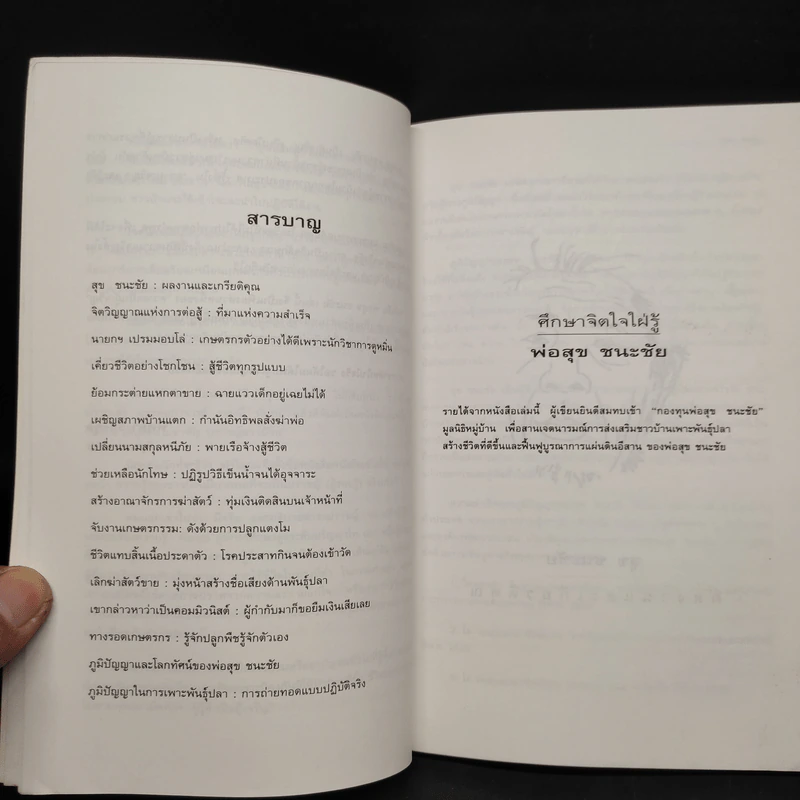 สารบาญ
สุข ชนะชัย : ผลงานและเกรียติคุณ
จิตวิญญาณแห่งการต่อสู้ : ที่มาแห่งความสำเร็จ
นายกฯ เปรมมอบโล่ : เกษตรกรตัวอย่างได้ดีเพราะนักวิชาการดูหมิ่น
เคี่ยวชีวิตอย่างโชกโชน : สู้ชีวิตทุกรูปแบบ
ย้อมกระต่ายแหกตาขาย : ฉายแววเด็กอยู่เฉยไม่ได้
เผชิญสภาพบ้านแตก : กำนันอิทธิพลสั่งฆ่าพ่อ
เปลี่ยนนามสกุลหนีภัย : พายเรือจ้างสู้ชีวิต
ช่วยเหลือนักโทษ : ปฏิรูปวิธีเข็นน้ำจนได้อุจจาระ
สร้างอาณาจักรการฆ่าสัตว์ : ทุ่มเงินติดสินบนเจ้าหน้าที่
จับงานเกษตรกรรม: ดังด้วยการปลูกแตงโม
ชีวิตแทบสิ้นเนื้อประดาตัว : โรคประสาทกินจนต้องเข้าวัด
เลิกฆ่าสัตว์ขาย : มุ่งหน้าสร้างชื่อเสียงด้านพันธุ์ปลา
เขากล่าวหาว่าเป็นคอมมิวนิสต์ : ผู้กำกับมาก็ขอยืมเงินเสียเลย
ทางรอดเกษตรกร : รู้จักปลูกพืชรู้จักตัวเอง
ภูมิปัญญาและโลกทัศน์ของพ่อสุข ชนะชัย
ภูมิปัญญาในการเพาะพันธุ์ปลา : การถ่ายทอดแบบปฏิบัติจริง
ศึกษาจิตใจใฝ่รู้
พ่อสุข ชนะชัย
รายได้จากหนังสือเล่มนี้ ผู้เขียนยินดีสมทบเข้า "กองทุนพ่อสุข ชนะชัย"
มูลนิธิหมู่บ้าน เพื่อสานเจตนารมณ์การส่งเสริมชาวบ้านเพาะพันธุ์ปลา
สร้างชีวิตที่ดีขึ้นและฟื้นฟูบูรณาการแผ่นดินอีสาน ของพ่อสุข ชนะชัย